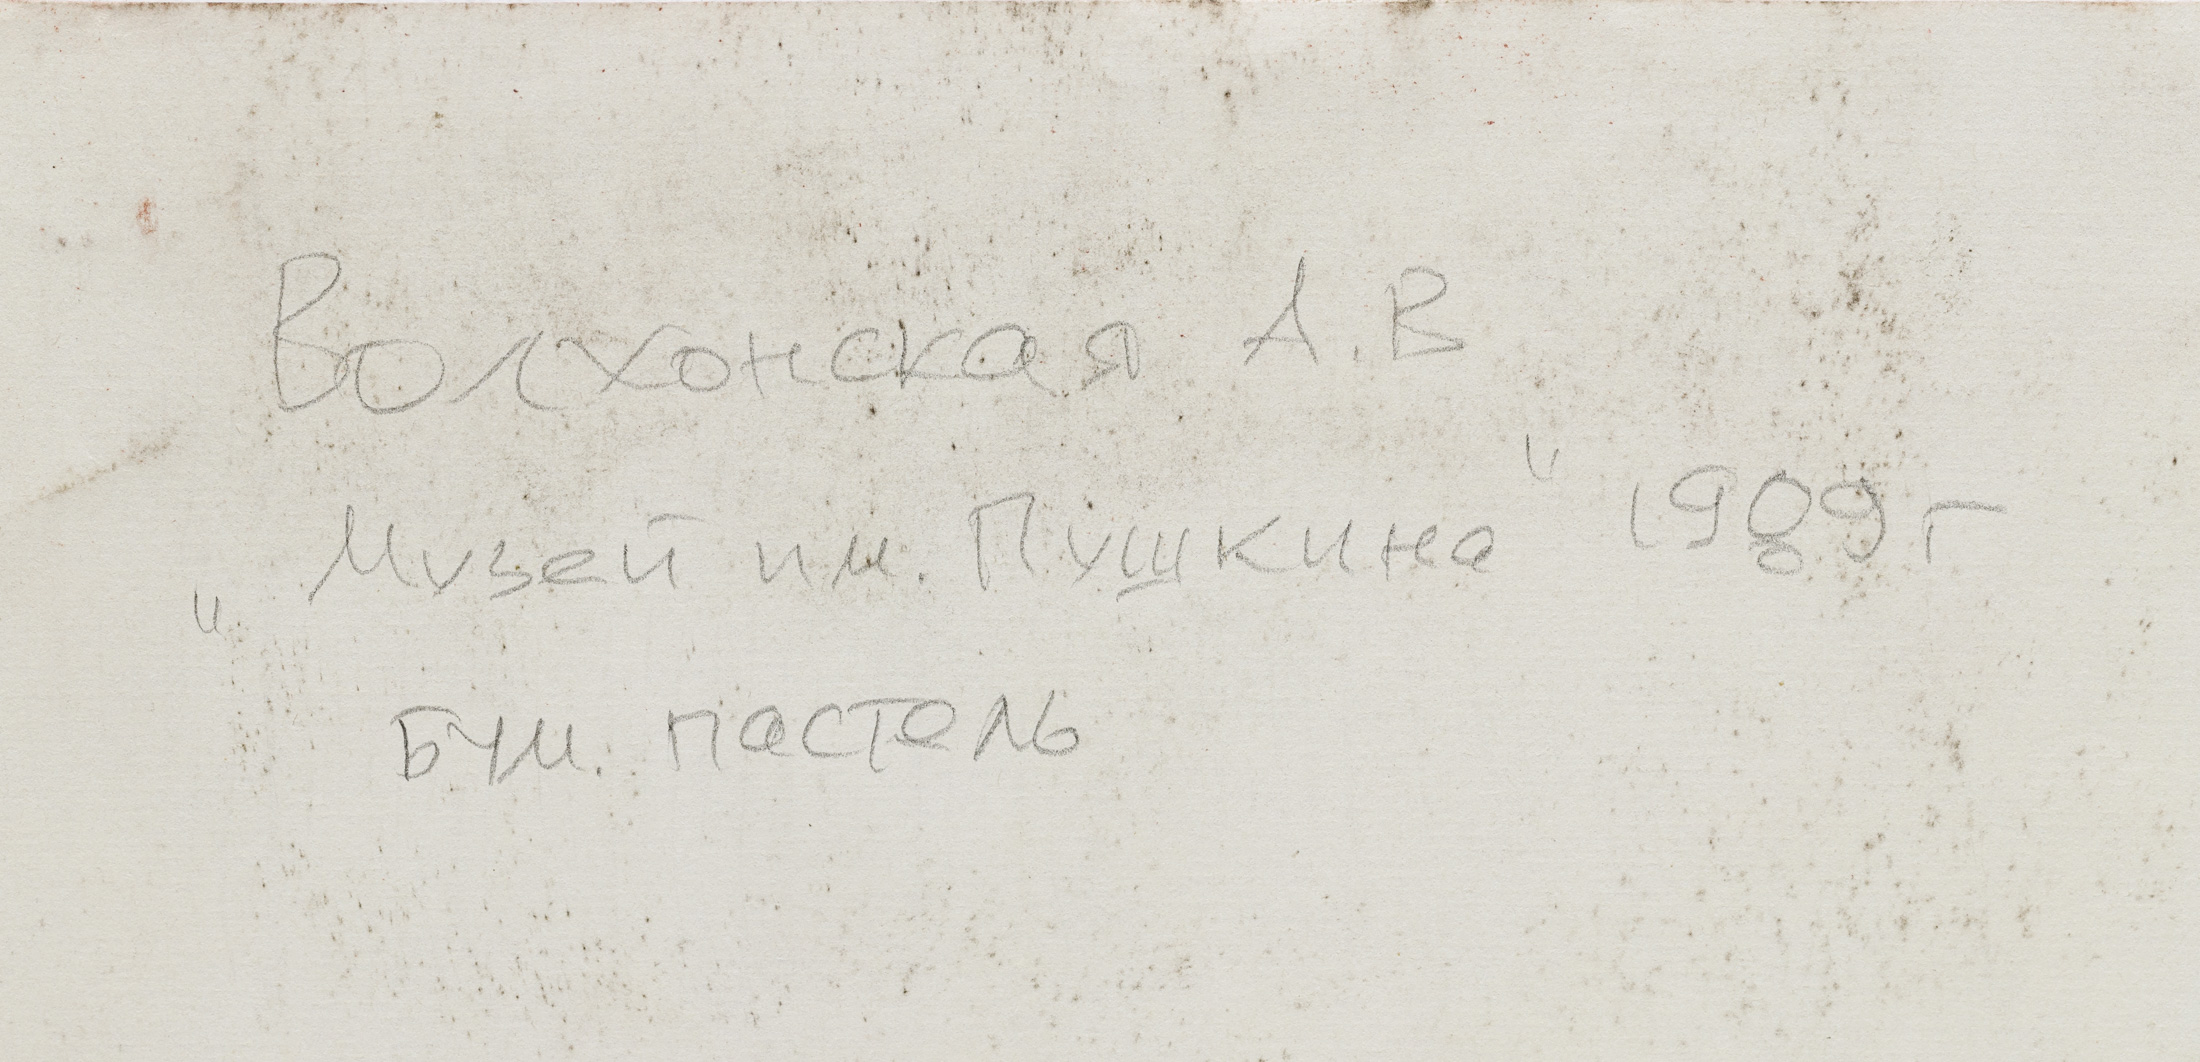 Волхонская А.В
„Музей им. Пушкина" 1989 г
Бум. пастель